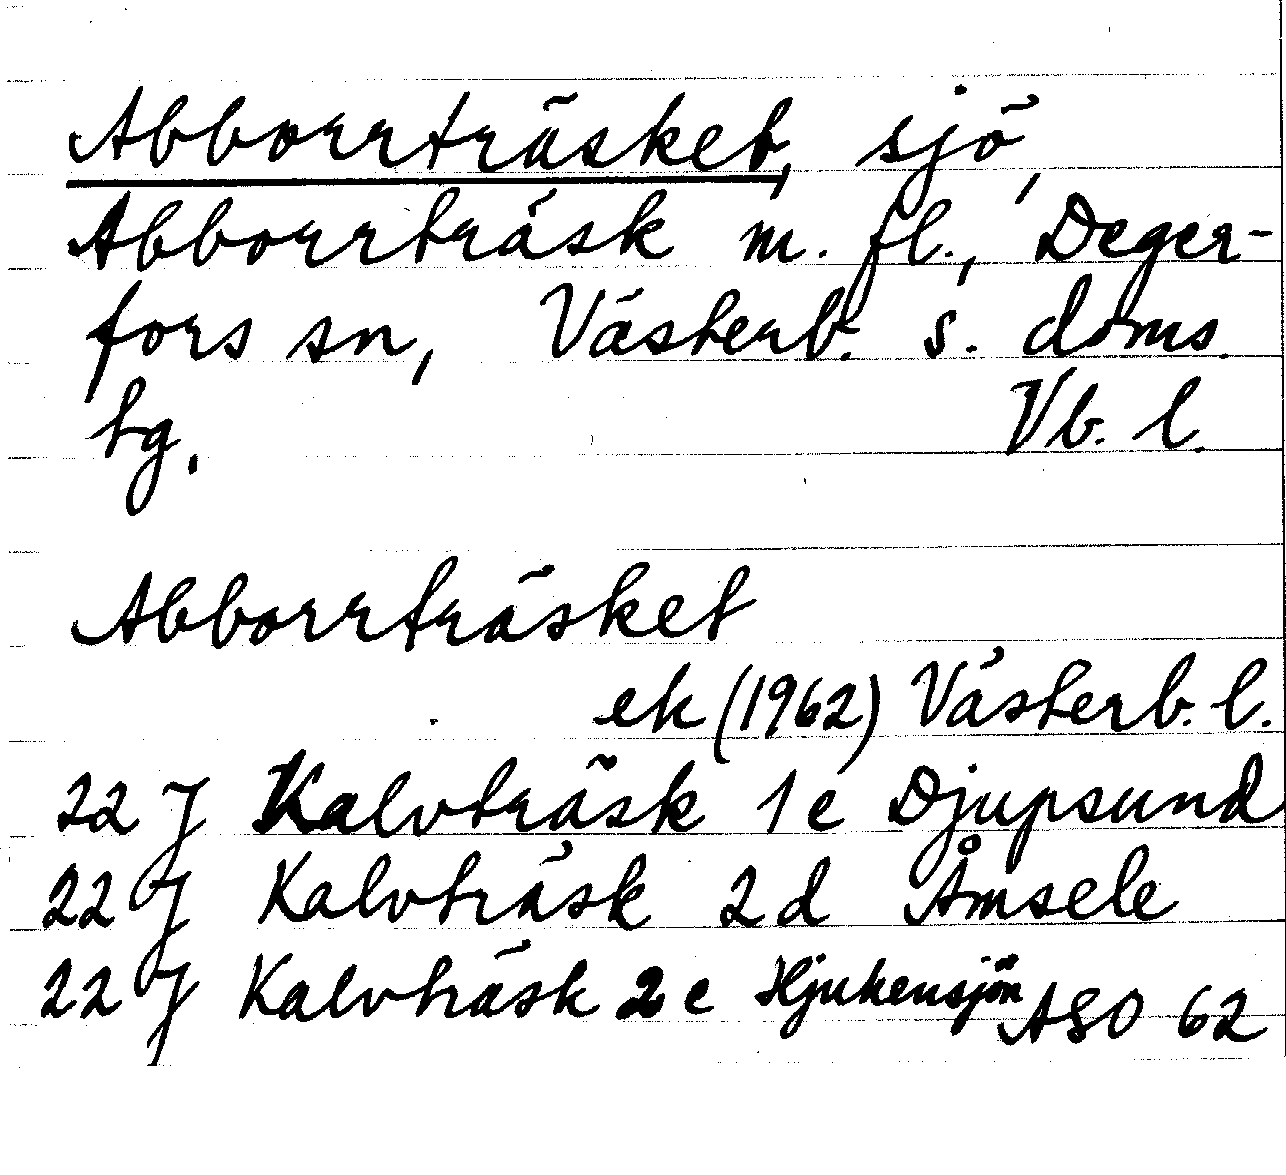 Abborrträsket, sjö,
Abborrträsk m. fl., Deger-
fors sn, Västerb. s. doms.
tg. Vb. l.
Abborrträsket
ek (1962) Västerb. l.
22 J Kalvträsk 1 e Djupsund
22 J Kalvträsk 2 d Åmsele
22 J Kalvträsk 2 e Hjukensjön
ASO 62